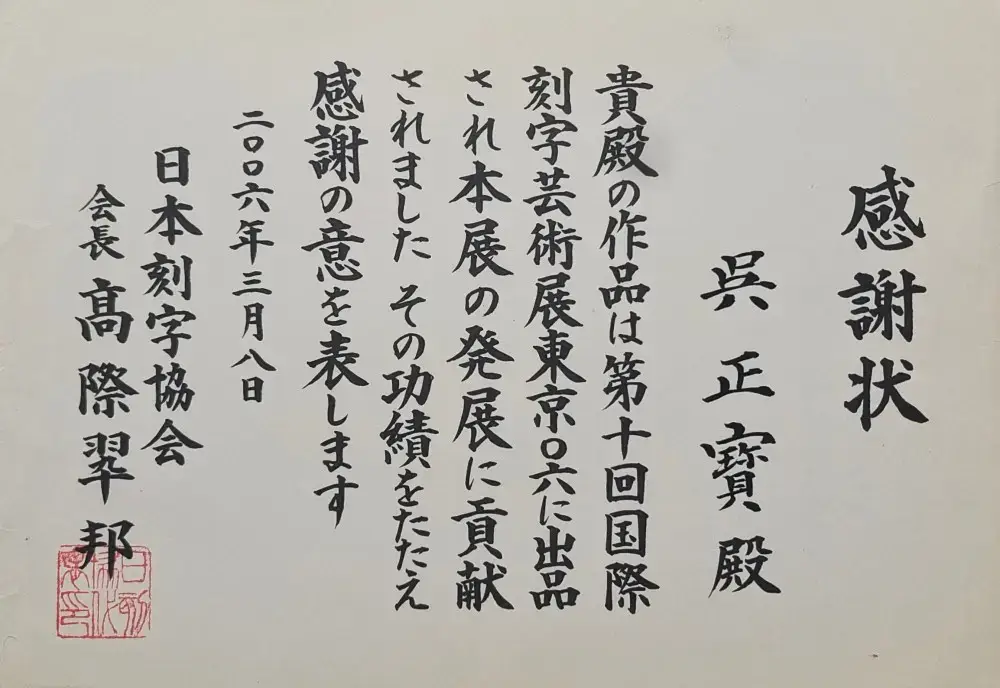 感謝状
呉正寳殿
貴殿の作品は第十回国際
刻字芸術展東京〇六に出品
され本展の発展に貢献
されました その功績をたたえ
感謝の意を表します
二〇〇六年三月八日
日本刻字協会
会長 髙際翠邦